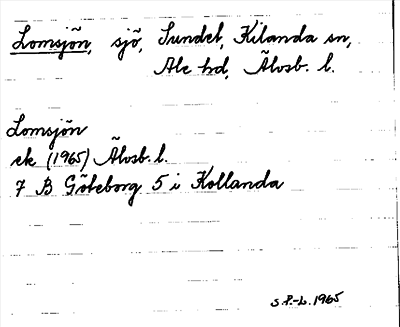 Lomsjön, sjö, Sundet, Kilanda sn,
Ale hd, Älvsb. l.
Lomsjön
ek (1965) Älvsb. l.
7 B Göteborg 5 i Kollanda
S.P.-L. 1965